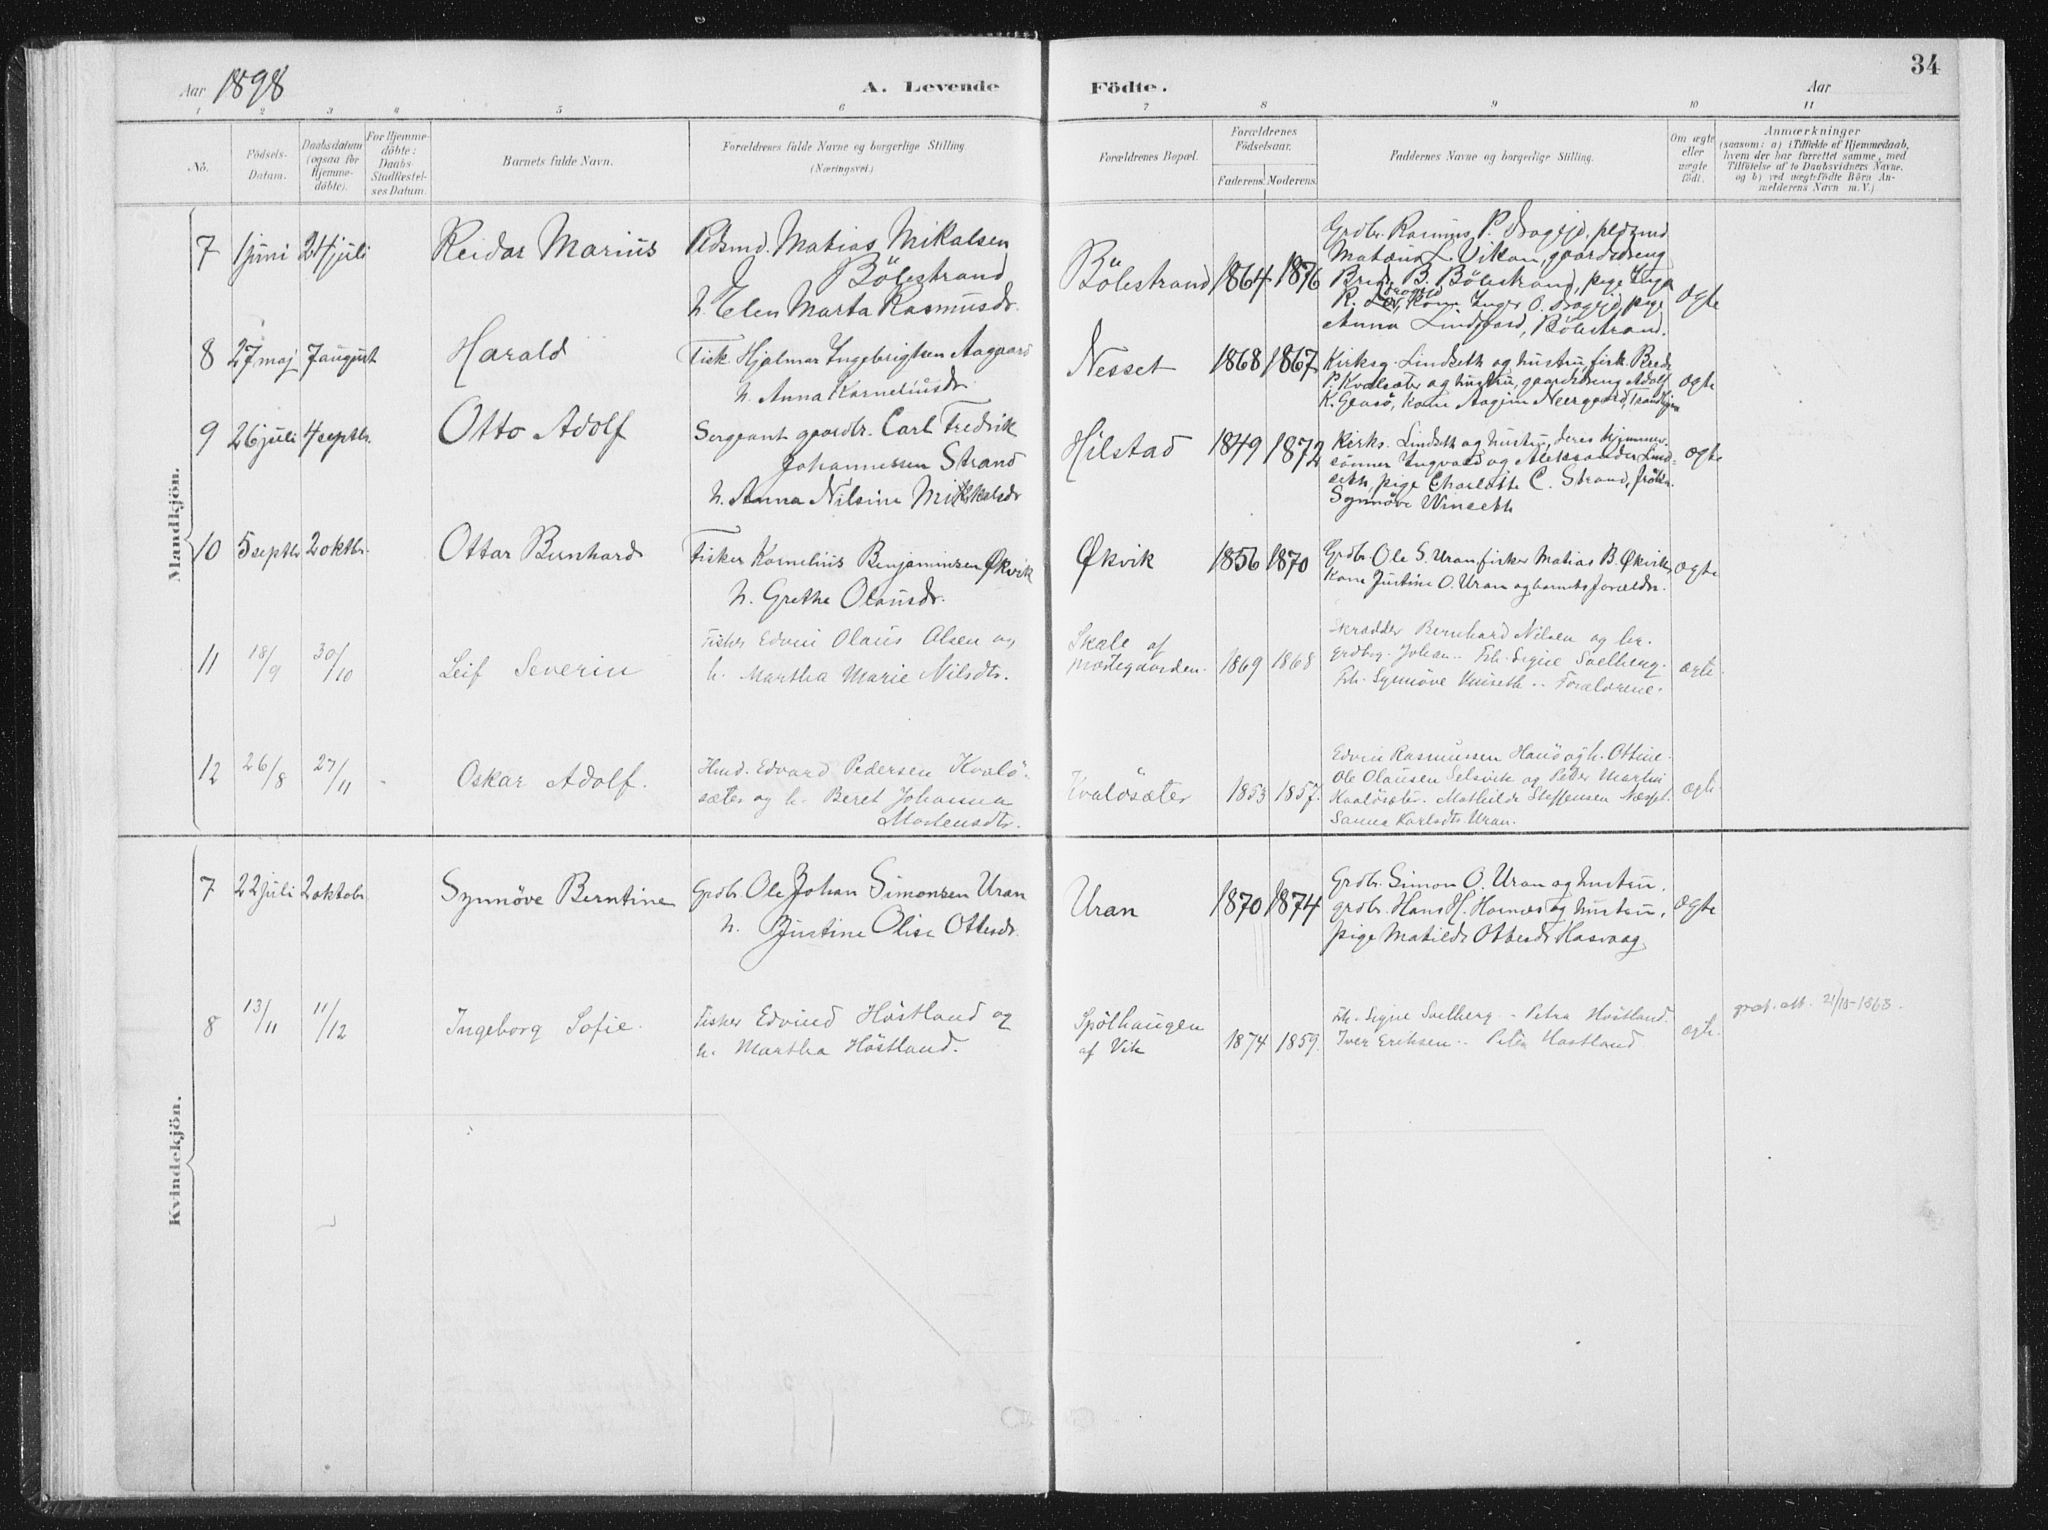 34
Aar 1898
A. Levende Födte.
Aar
1 2 3 4 5 6 7 8 9 10 11
No.
Födsels-Datum.
Daabsdatum (ogsaa for Hjemmedöbte).
For Hjemmedöbte: Daabs-Stadfæstelses Datum.
Barnets fulde Navn.
Forældrenes fulde Navne og borgerlige Stilling (Næringsvei.)
Forældrenes Bopæl.
Forældrenes Födselsaar.
Faderens. Moderens.
Faddernes Navne og borgerlige Stilling.
Om ægte eller uægte födt.
Anmærkninger
(saasom: a) i Tilfælde af Hjemmedaab,
hvem der har forrettet samme, med
Tilföielse af to Daabsvidners Navne,
og b) ved uægtefödte Börn Anmelderens Navn m. V.)
Mandkjön.
7 1 juni 24 juli Reidar Marius
Pldsmd. Matias Mikalsen
Bölestrand
h. Elen Marta Rasmusdr.
Bölestrand 1864 1876
Grdbr. Rasmus P. Dragejd, pldsmd
Matæus L. Vikan, gaardsdreng
B. Bölestrand, pige
kone Inger O. Dragejd, pige
Anna Lindgaard, Bölestrand.
ægte
8 27 maj 7 august Harald
Fisk. Hjalmar Ingebrigtsen Aagaard
h. Anna Korneliusdr.
Nesset 1868 1867
Kirksg. Lindseth og hustru, fisk. Peder
P. Kvalsæter og hustru, gaardsdreng Adolf
ægte
9 26 juli 4 septbr. Otto Adolf
Sergeant gaardbr. Carl Fredrik
Johannessen Strand
h. Anna Nilsine Mikkalsdr
Hilstad 1849 1872
Kirks. Lindseth og hustru, deres hjemmev.
sönner Ingvald og Aleksander Lind-
seth, pige Charlotte C. Strand, fröken
Synnöve Winseth
ægte
10 5 septbr 2 oktbr. Ottar Bernhard
Fisker Kornelius Benjaminsen Økvik
h. Grethe Olausdr.
Økvik 1856 1870
Grdbr. Ole S. Uran fisker Matias B. Økvik,
Kone Justine O. Uran og barnets forældre.
ægte
11 18/9 30/10 Leif Severin
Fisker Edvin Olaus Olsen og
h. Martha Marie Nilsdtr.
Skale af
Prestegaarden. 1869 1868
Skrædder Bernhard Nilsen og hr.
Johan .. Frk. Signe Soelberg.
Frk. Synnöve Vinseth .. Forældrene.
ægte
12 26/8 27/11 - Oskar Adolf.
Hmd. Edvard Pedersen Kvalö-
sæter og h. Beret Johanna
Mortensdtr.
Kvalösæter 1853 1857.
Edvin Rasmussen Hanö og h. Ottine.
Ole Olausen Selsvik og Peder Martin
Kvalösæter. Mathilde Steffensen Næsset.
Sanna Karlsdtr Uran.
ægte
Kvindekjön.
7 22 juli 2 oktobr. Synnöve Berntine
Grdbr. Ole Johan Simonsen Uran
h. Justine Olise Ottesdr.
Uran 1870 1874
Grdbr. Simon O. Uran og hustru,
grdbr. Hans H. Hornæs og hustru,
pige Matilde Ottesdr Hasvaag.
ægte
8 13/11 11/12 Ingeborg Sofie.
Fisker Edvind Höstland og
h. Martha Höstland.
Spölhaugen
af Vik 1874 1859.
Frk. Signe Soelberg .. Petra Höstland.
Iver Eriksen .. Peter Hostland
ægte.